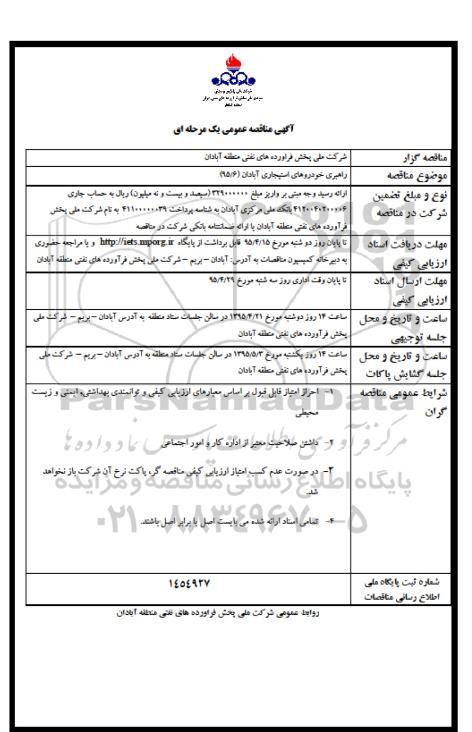 آگهی مناقصه عمومی یک مرحله ای
مناقصه گزار
شرکت ملی پخش فراورده های نفتی منطقه آبادان
موضوع مناقصه
راهبری خودروهای استیجاری آبادان (۹۵/۶)
نوع و مبلغ تضمین
شرکت در مناقصه
ارائه رسید وجه مبنی بر واریز مبلغ ۳۲۹۰۰۰۰۰۰ (سیصد و بیست و نه میلیون) ریال به حساب جاری
بانک ملی مرکزی آبادان به شناسه پرداخت ۴۱۱۰۰۰۰۰۰۳۹ به نام شرکت ملی پخش
فرآورده های نفتی منطقه آبادان یا ارائه ضمانتنامه بانکی شرکت در مناقصه
مهلت دریافت اسناد
ارزیابی کیفی
تا پایان روز دو شنبه مورخ ۹۵/۴/۱۵ قابل برداشت از پایگاه http://iets.mporg.ir و یا مراجعه حضوری
به دبیرخانه کمیسیون مناقصات به آدرس: آبادان – بریم – شرکت ملی پخش فرآورده های نفتی منطقه آبادان
مهلت ارسال اسناد
ارزیابی کیفی
تا پایان وقت اداری روز سه شنبه مورخ ۹۵/۴/۲۹
ساعت و تاریخ و محل
جلسه توجیهی
ساعت ۱۴ روز دوشنبه مورخ ۱۳۹۵/۴/۲۱ در سالن جلسات ستاد منطقه به آدرس آبادان – بریم – شرکت ملی
پخش فرآورده های نفتی منطقه آبادان
ساعت و تاریخ و محل
جلسه گشایش پاکات
ساعت ۱۴ روز یکشنبه مورخ ۱۳۹۵/۵/۳ در سالن جلسات ستاد منطقه به آدرس آبادان – بریم – شرکت ملی
پخش فرآورده های نفتی منطقه آبادان
شرایط عمومی مناقصه
گران
۱- احراز امتیاز قابل قبول بر اساس معیارهای ارزیابی کیفی و توانمندی بهداشتی، ایمنی و زیست
محیطی
۲- داشتن صلاحیت معتبر از اداره کار و امور اجتماعی
۳- در صورت عدم کسب امتیاز ارزیابی کیفی مناقصه گر، پاکت نرخ آن شرکت باز نخواهد
شد.
۴- تمامی اسناد ارائه شده می بایست اصل یا برابر اصل باشند.
شماره ثبت پایگاه ملی
اطلاع رسانی مناقصات
۱۴۵۴۹۲۷
روابط عمومی شرکت ملی پخش فراورده های نفتی منطقه آبادان
ParsNamadData
پایگاه اطلاع رسانی مناقصه و مزایده
۰۲۱-۸۸۳۴۹۶۷۰-۵